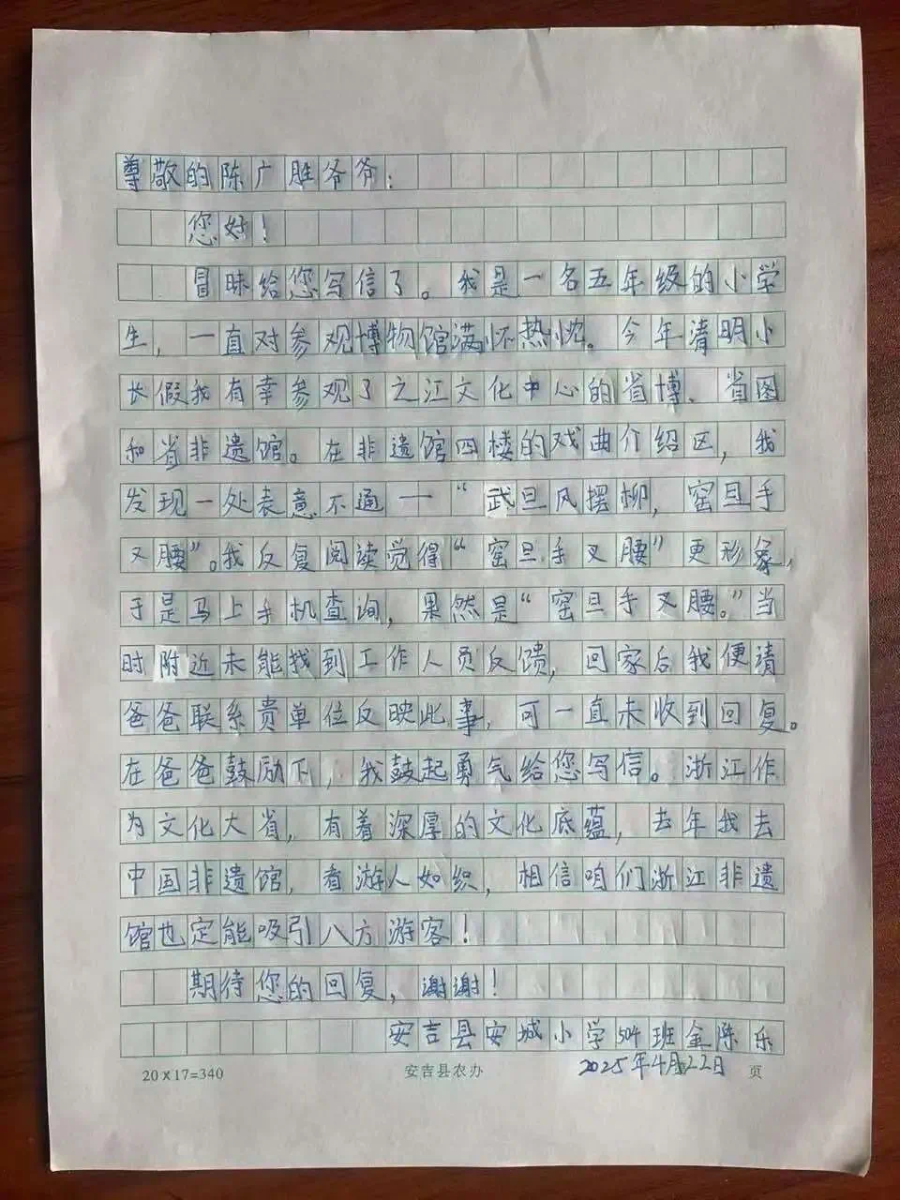 尊敬的陈广胜爷爷：
您好！
冒昧给您写信了。我是一名五年级的小学
生，一直对参观博物馆满怀热忱。今年清明小
长假我有幸参观了之江文化中心的省博、省图
和省非遗馆。在非遗馆四楼的戏曲介绍区，我
发现一处表意不通—“武旦风摆柳，窑旦手
叉腰”。我反复阅读觉得“窑旦手叉腰”更形象，
于是马上手机查询，果然是“窑旦手叉腰。”当
时附近未能找到工作人员反馈，回家后我便请
爸爸联系贵单位反映此事，可一直未收到回复。
在爸爸鼓励下，我鼓起勇气给您写信。浙江作
为文化大省，有着深厚的文化底蕴，去年我去
中国非遗馆，看游人如织，相信咱们浙江非遗
馆也定能吸引八方游客！
期待您的回复，谢谢！
安吉县安城小学504班金陈乐
20×17=340 安吉县农办 2025年4月22日 页